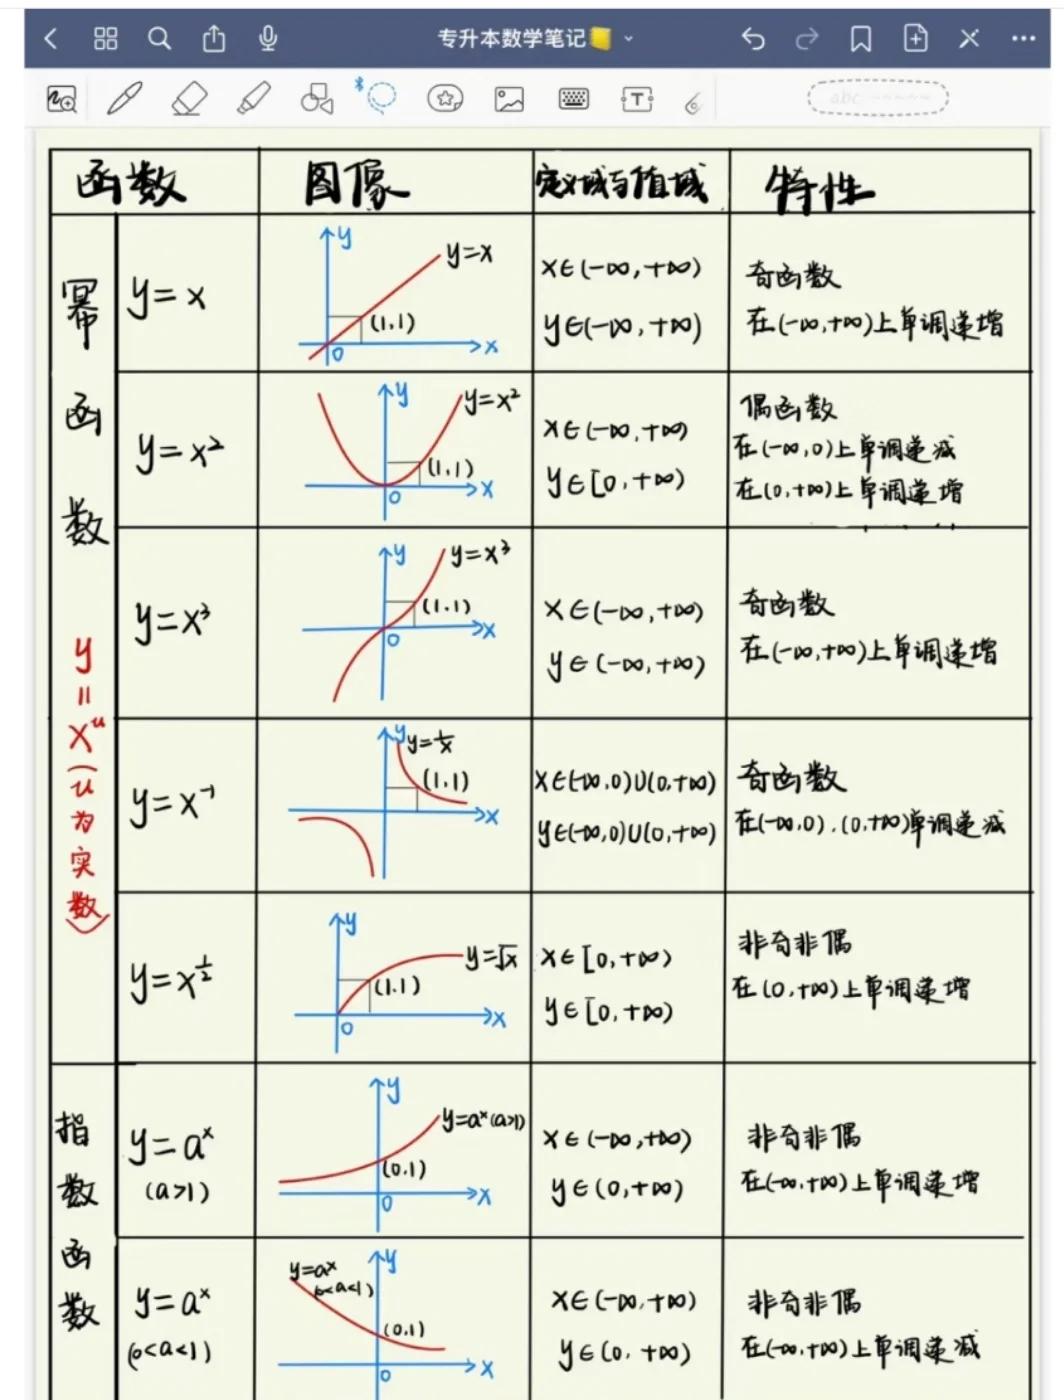 专升本数学笔记
abc
函数 图像 定义域与值域 特性
幂函数 y=x^u (u为实数)
y=x
y
y=x
(1,1)
0
x
x∈(-∞,+∞)
y∈(-∞,+∞)
奇函数
在(-∞,+∞)上单调递增
y=x²
y
y=x²
(1,1)
0
x
x∈(-∞,+∞)
y∈[0,+∞)
偶函数
在(-∞,0)上单调递减
在(0,+∞)上单调递增
y=x³
y
y=x³
(1,1)
0
x
x∈(-∞,+∞)
y∈(-∞,+∞)
奇函数
在(-∞,+∞)上单调递增
y=x⁻¹
y
y=1/x
(1,1)
x
x∈(-∞,0)∪(0,+∞)
y∈(-∞,0)∪(0,+∞)
奇函数
在(-∞,0),(0,+∞)单调递减
y=x^½
y
y=√x
(1,1)
0
x
x∈[0,+∞)
y∈[0,+∞)
非奇非偶
在(0,+∞)上单调递增
指数函数
y=aˣ
(a>1)
y
y=aˣ(a>1)
(0,1)
0
x
x∈(-∞,+∞)
y∈(0,+∞)
非奇非偶
在(-∞,+∞)上单调递增
y=aˣ
(0<a<1)
y
y=aˣ
(0<a<1)
(0,1)
0
x
x∈(-∞,+∞)
y∈(0,+∞)
非奇非偶
在(-∞,+∞)上单调递减